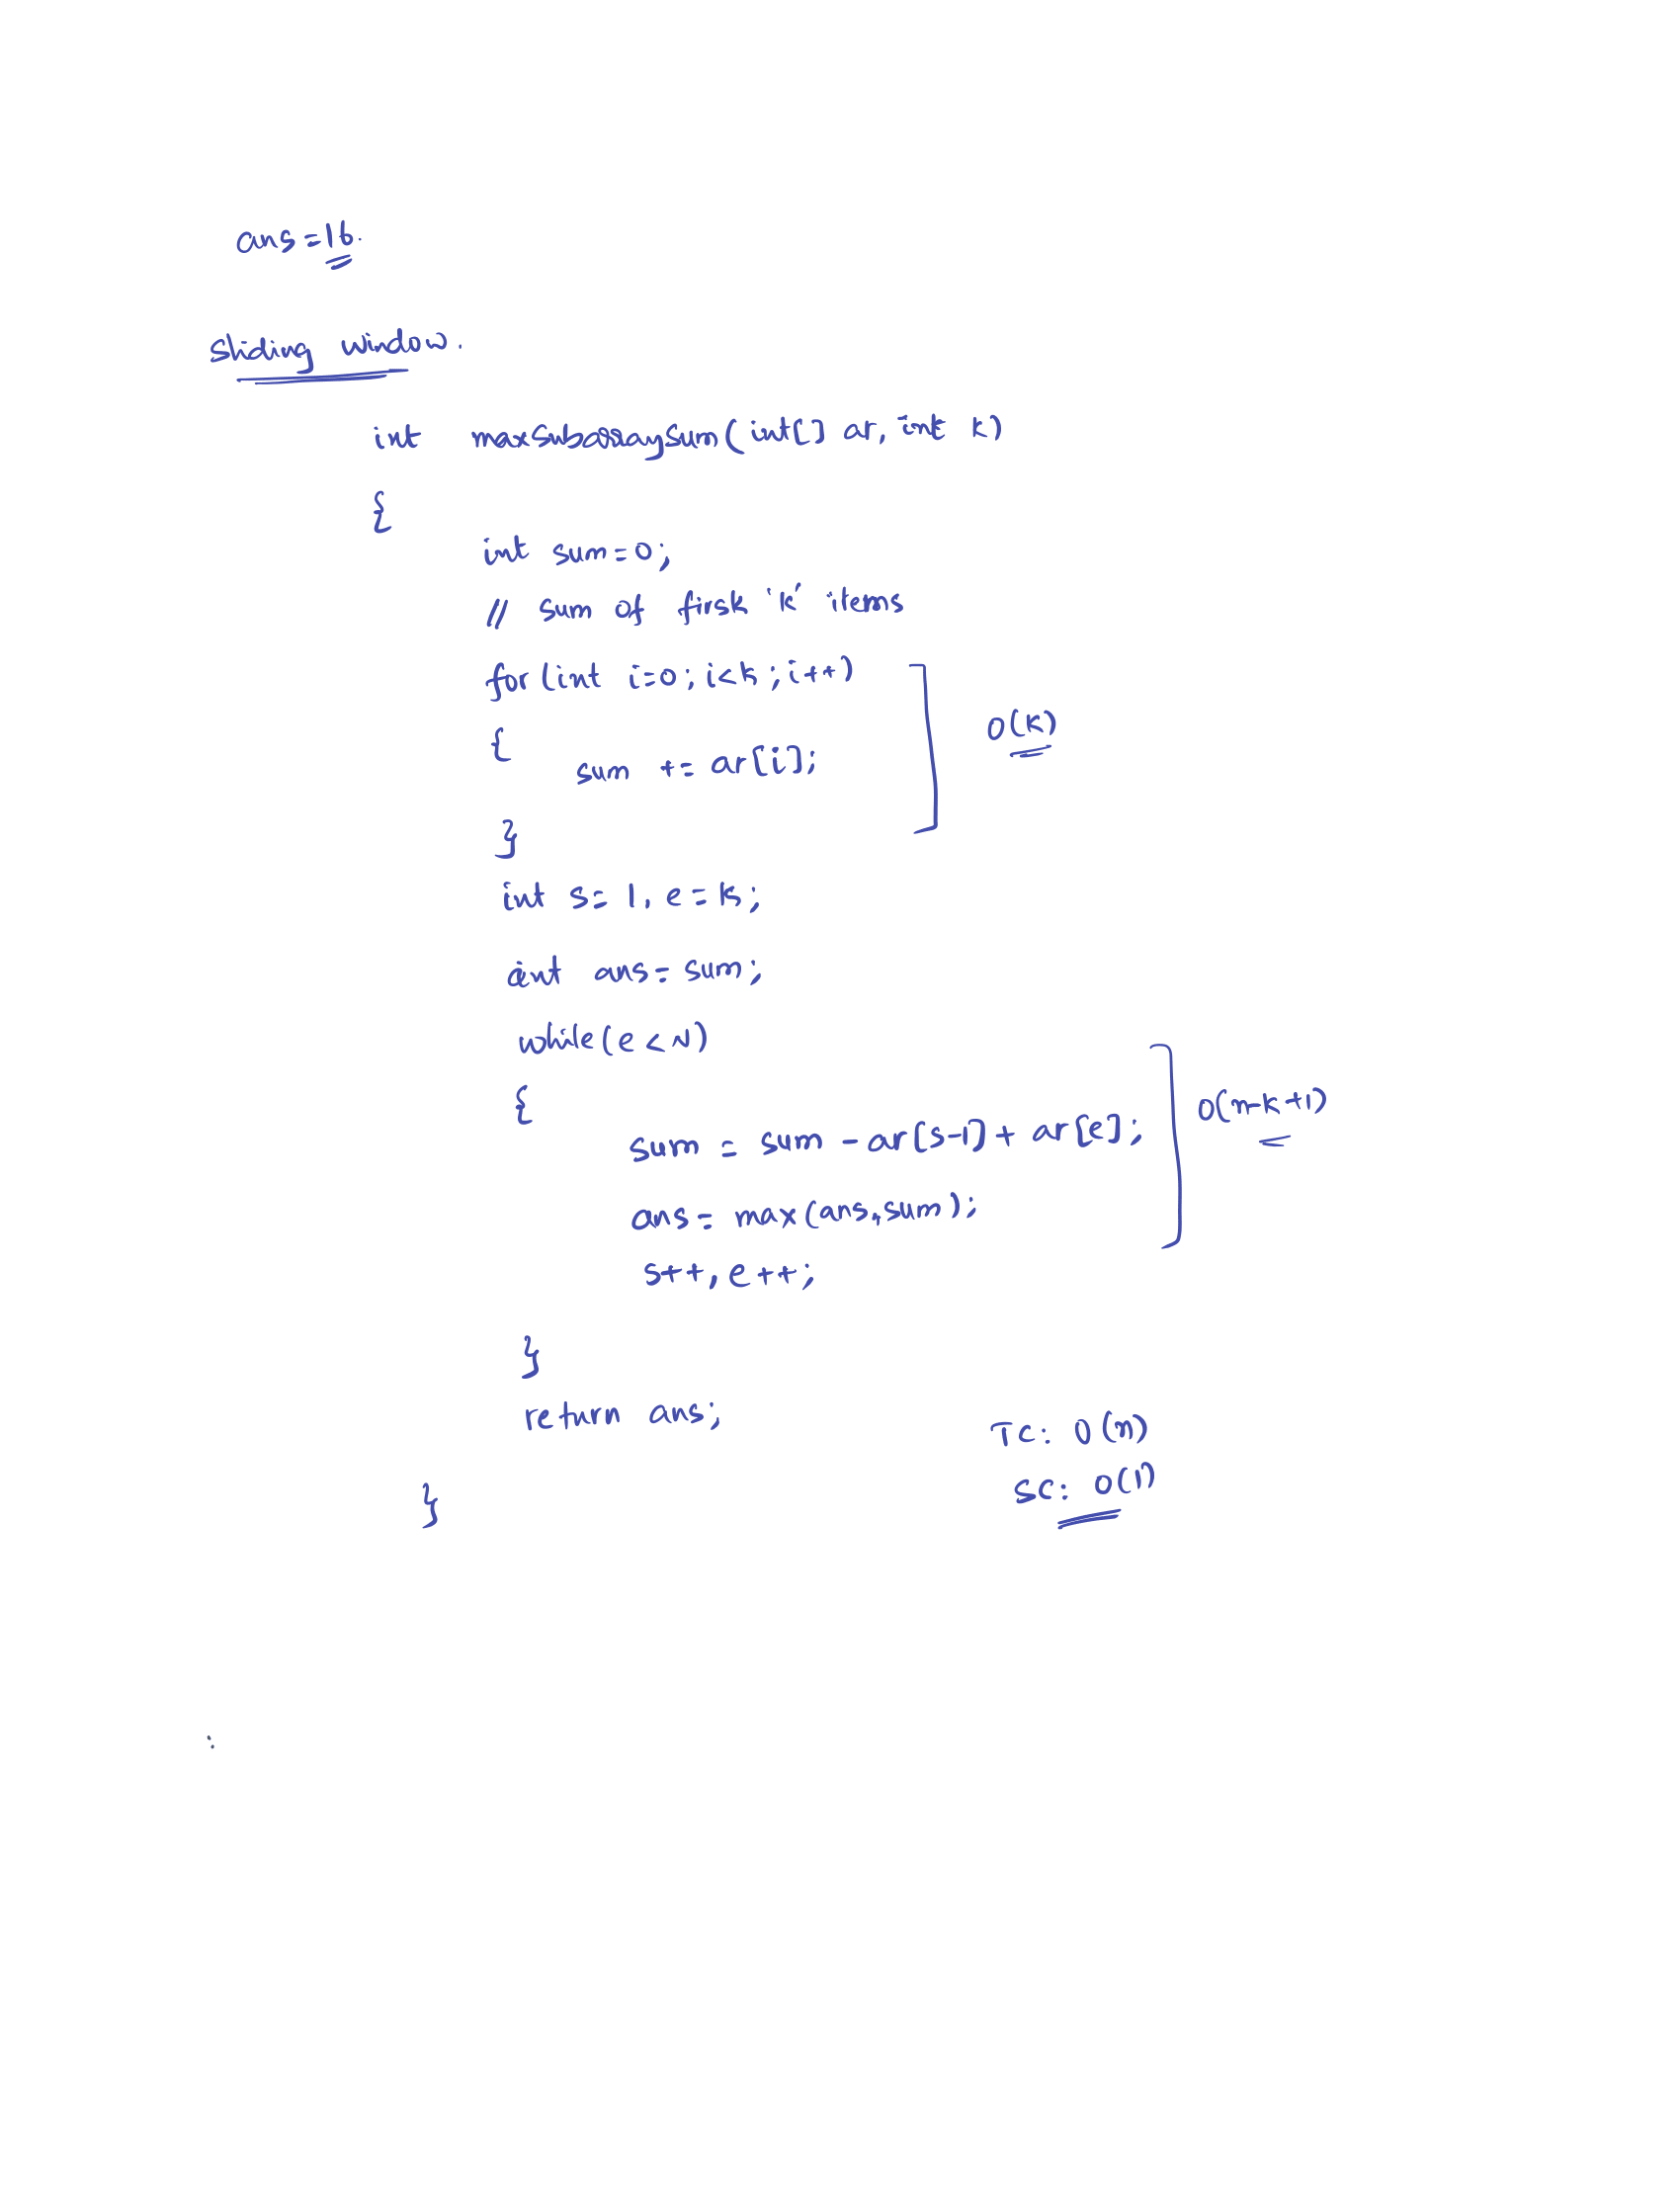 ans = 16.
Sliding window.
int maxSubarraySum(int[] ar, int k)
{
int sum=0;
// sum of first 'k' items
for(int i=0; i<k; i++)
{
sum += ar[i];
O(k)
}
int s= 1, e=k;
int ans= sum;
while(e < N)
{
sum = sum - ar[s-1] + ar[e];
O(n-k+1)
ans= max(ans,sum);
s++, e++;
}
return ans;
TC: O(n)
SC: O(1)
}